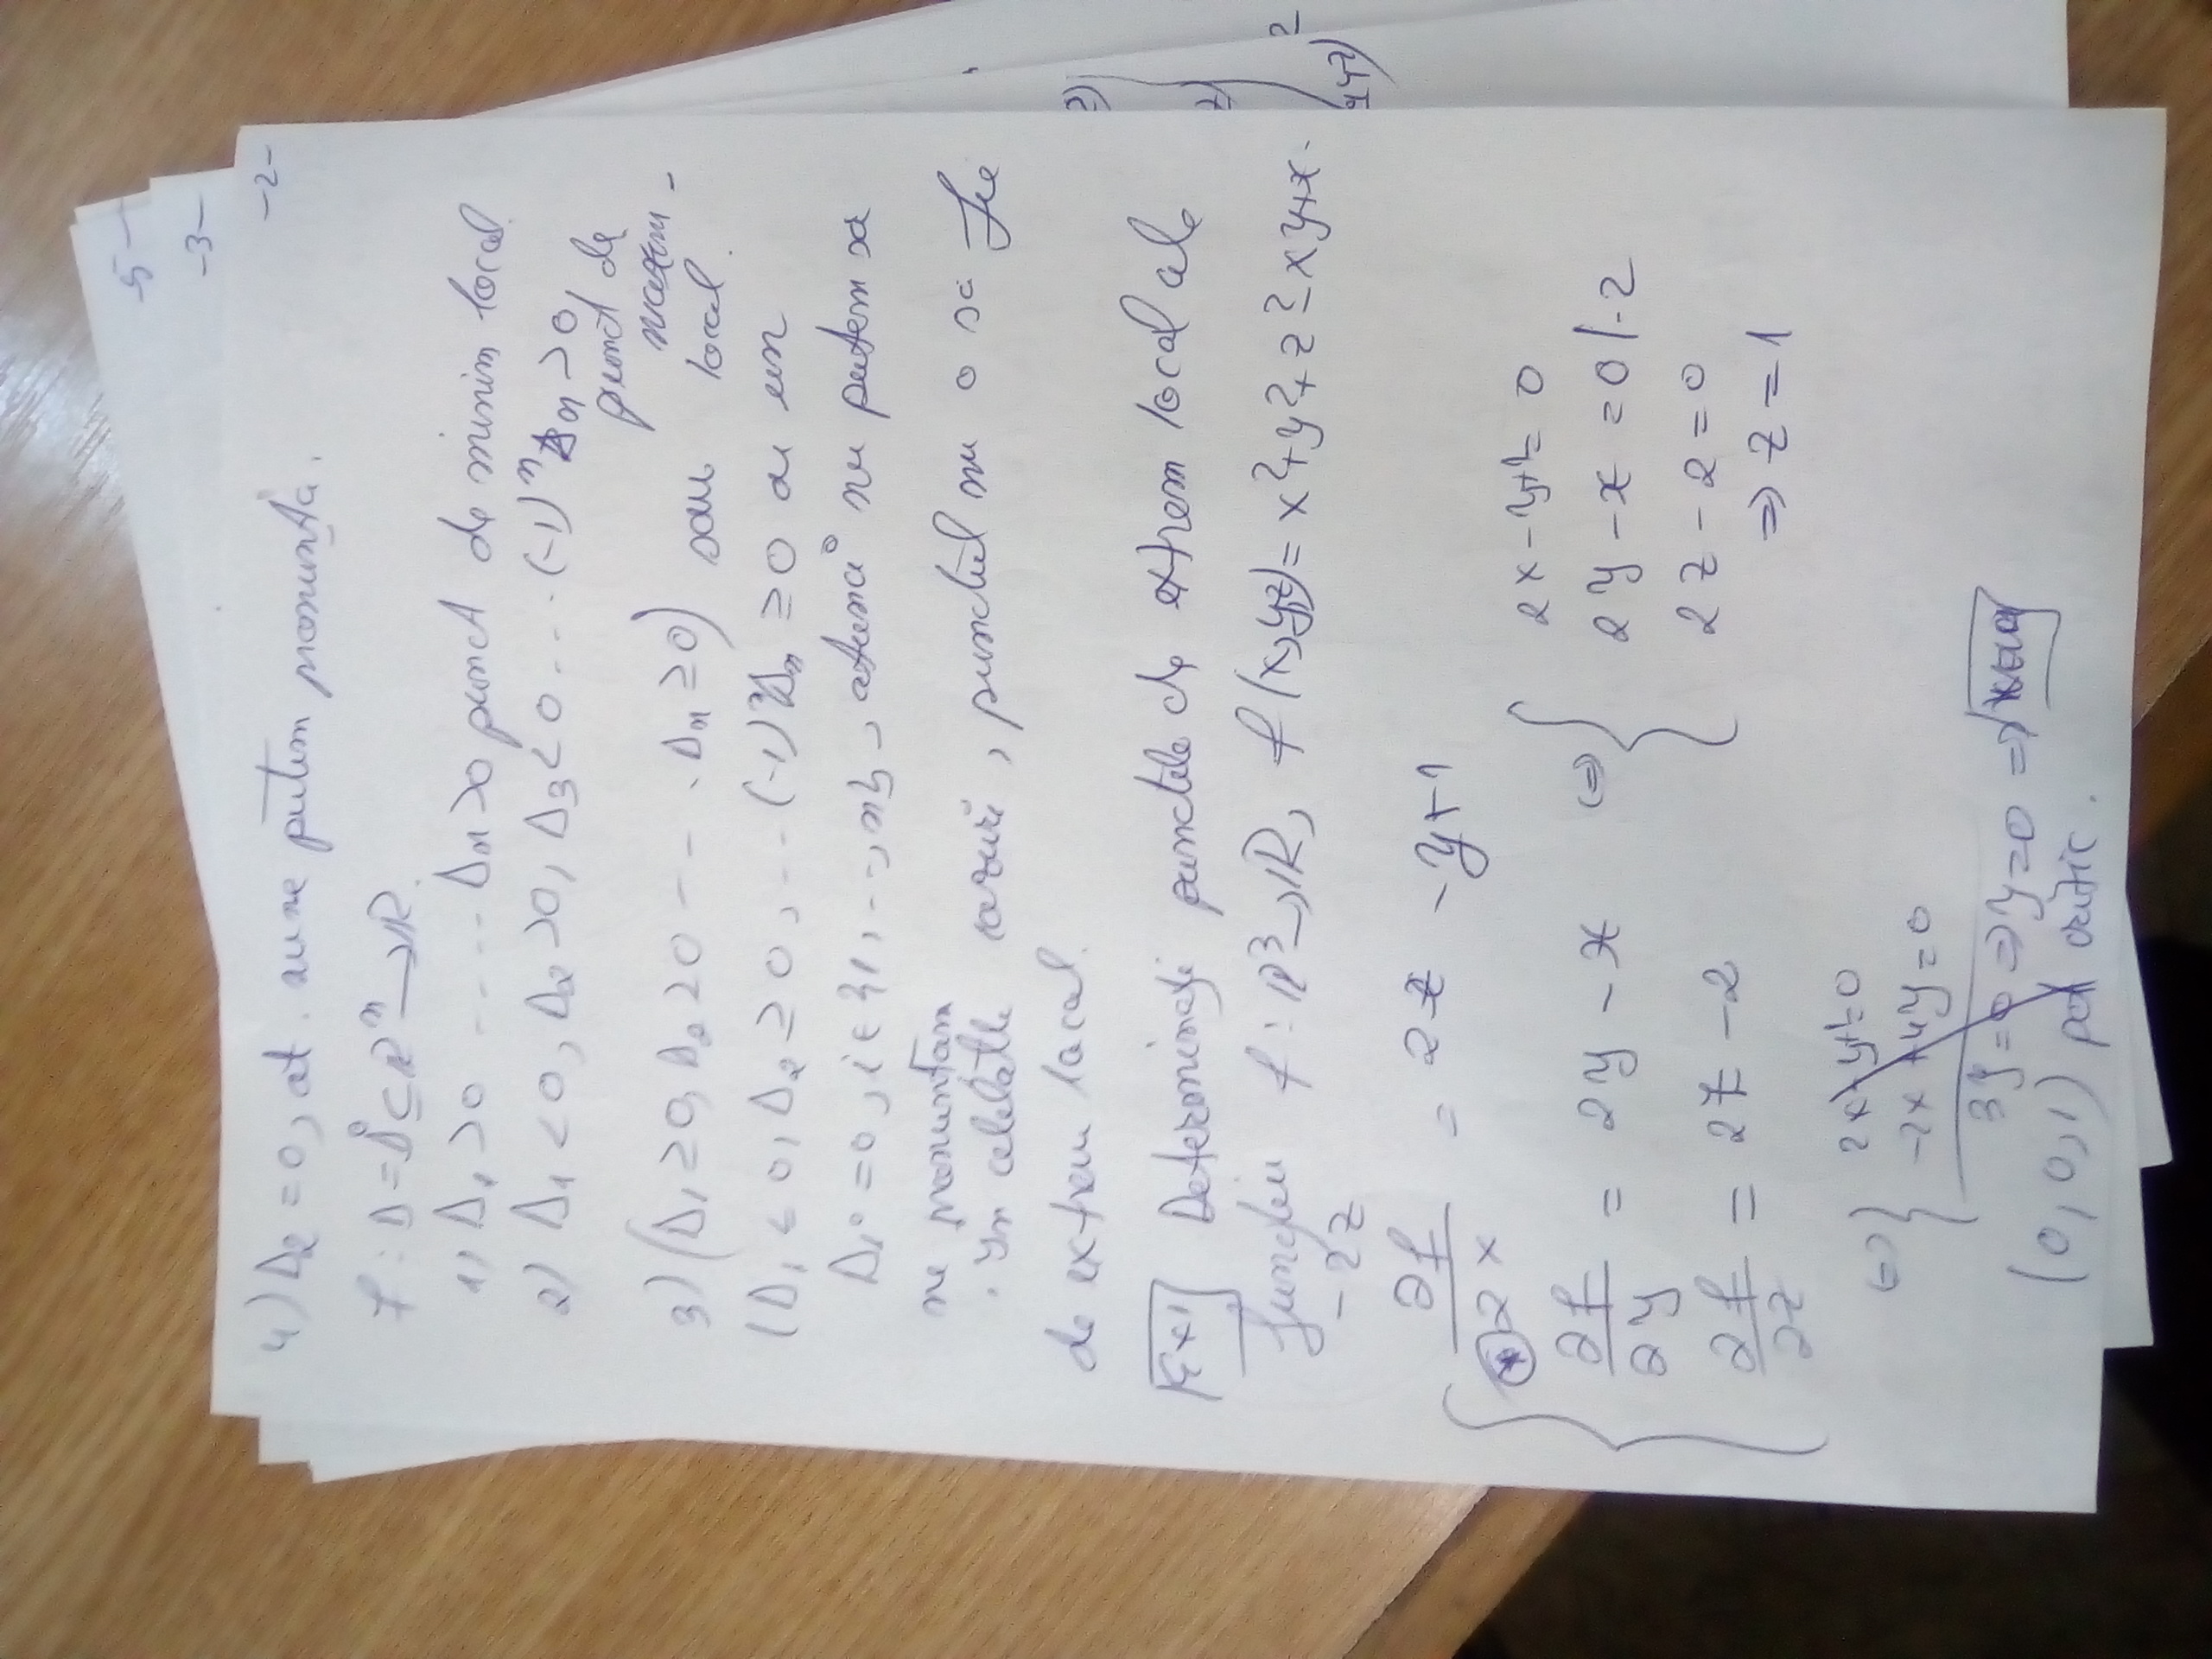 -5-
-3-
-2-
4) Δ₂ = 0, at. nu ne putem pronunța.
f : D = D̊ ⊆ ℝⁿ → ℝ.
1) Δ₁ > 0 ---- Δₙ > 0 punct de minim local.
2) Δ₁ < 0, Δ₂ > 0, Δ₃ < 0 ... (-1)ⁿ Δₙ > 0
punct de
maxim-
local.
3) (Δ₁ ≥ 0, Δ₂ ≥ 0 --- . Δₙ ≥ 0) sau
(Δ₁ ≤ 0, Δ₂ ≥ 0, ... (-1)ⁿ Δₙ ≥ 0 cu un
Δᵢ = 0, i ∈ {1, ..., n}, atunci nu putem sa
ne pronuntam
. In celelalte cazuri, punctul nu o sa fie
de extrem local.
Ex1 Determinați punctele de extrem local ale
funcției f : ℝ³ → ℝ, f(x,y,z) = x² + y² + z² - xy + x -
- 2z
∂f/∂x = 2x - y + 1
∂f/∂y = 2y - x (=) { 2x - y + 1 = 0
2y - x = 0 | · 2
∂f/∂z = 2z - 2 2z - 2 = 0
=> z = 1
(=) { 2x - y + 1 = 0
-2x + 4y = 0
3y = 0 => y = 0 =>
(0, 0, 1) pct critic.
2)
z)
+yz)²